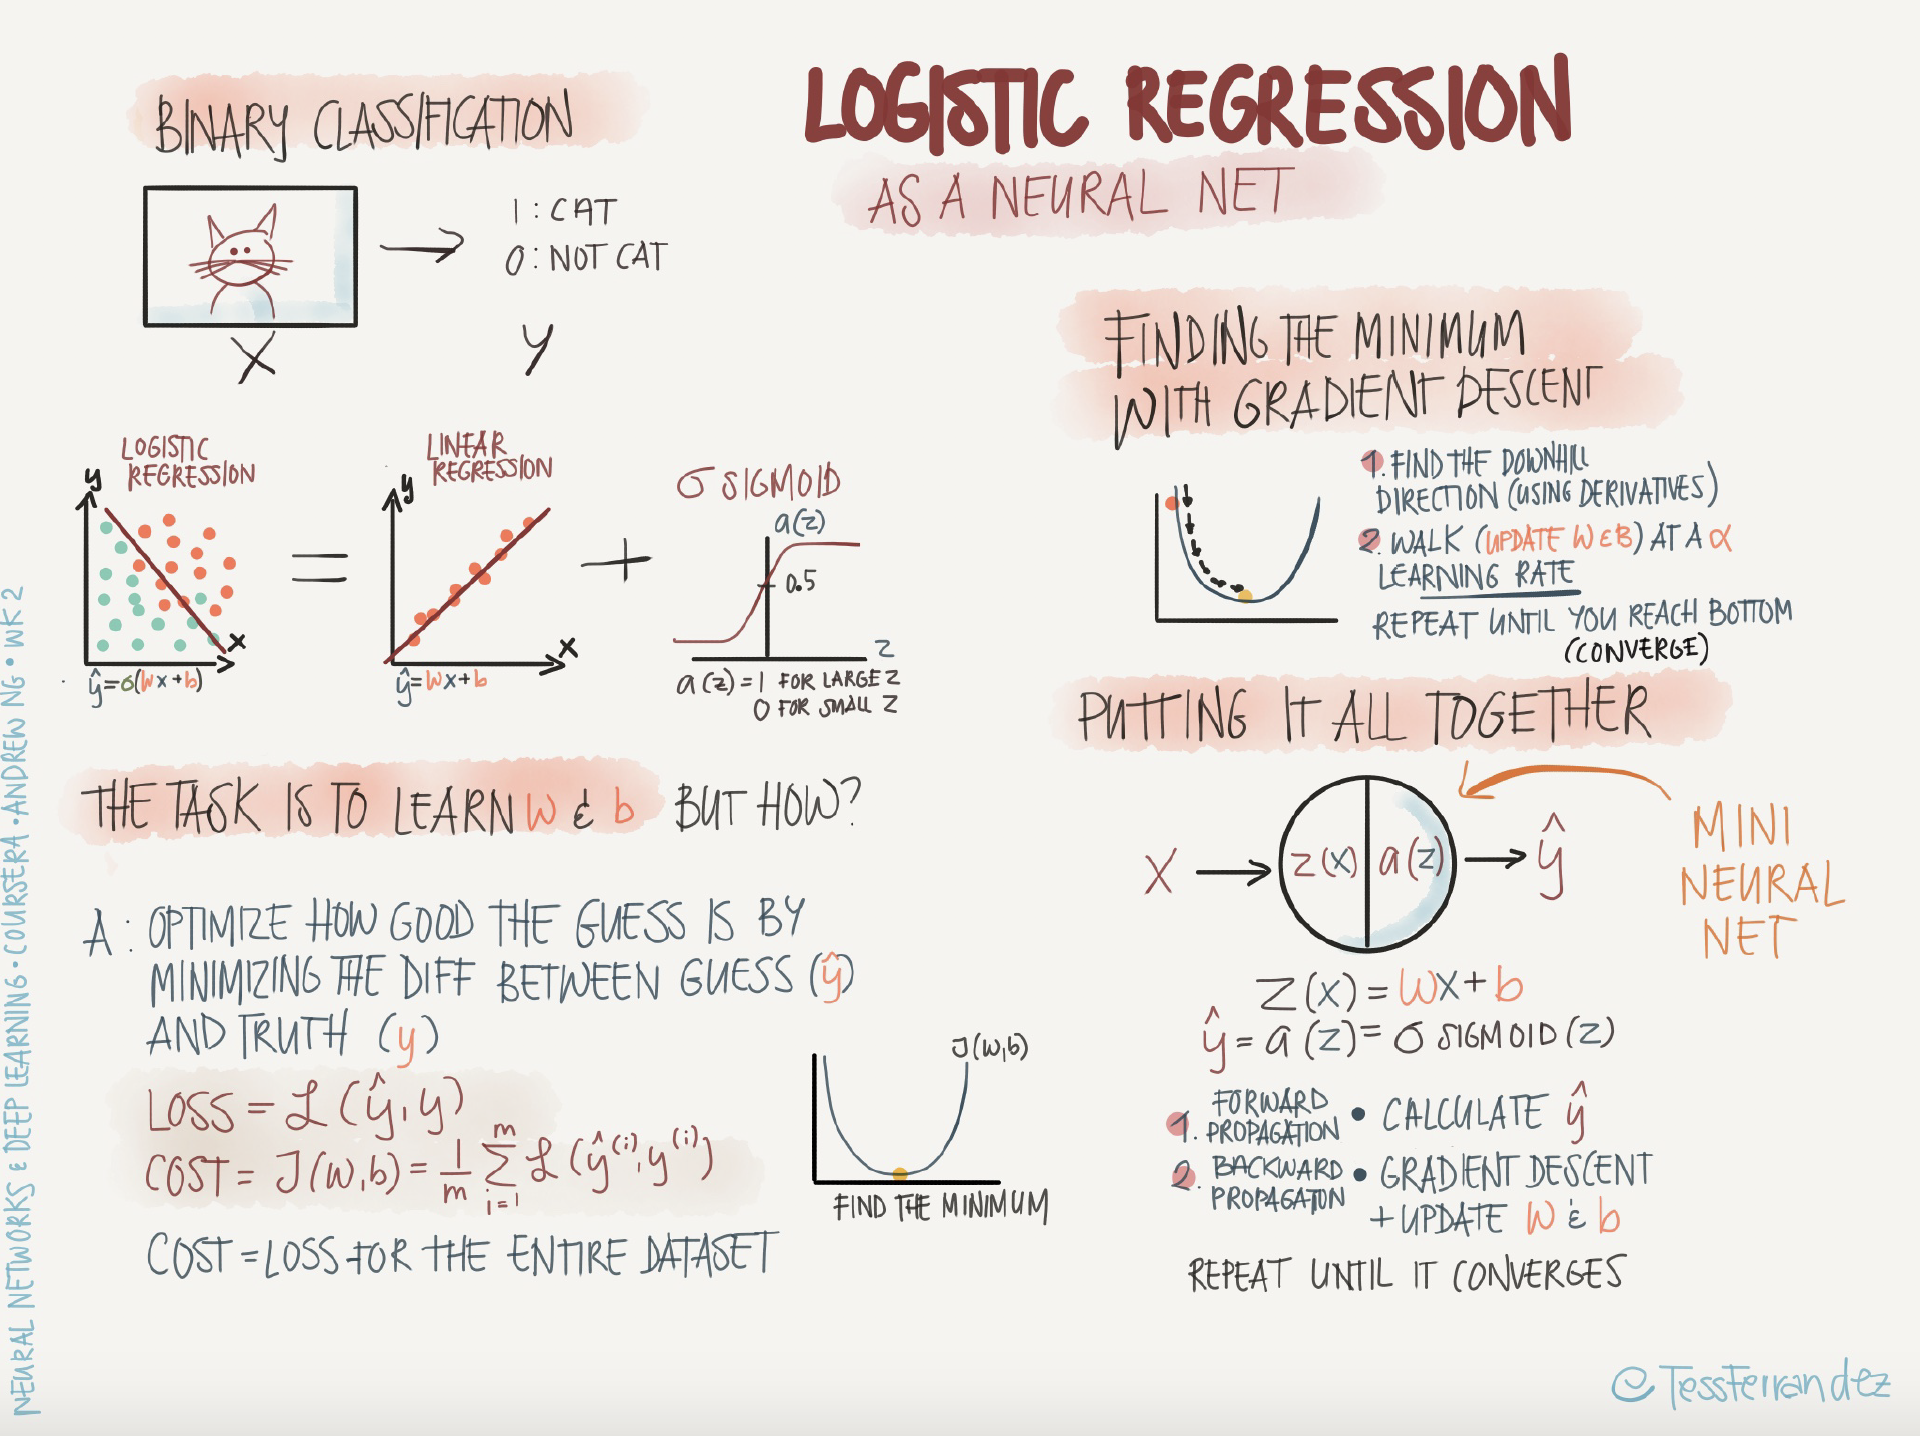 LOGISTIC REGRESSION
AS A NEURAL NET
BINARY CLASSIFICATION
1 : CAT
0 : NOT CAT
X
Y
LOGISTIC
REGRESSION
y
x
ŷ = σ(wx + b)
=
LINEAR
REGRESSION
y
x
ŷ = wx + b
+
σ SIGMOID
a(z)
0.5
z
a(z) = 1 FOR LARGE Z
0 FOR SMALL Z
THE TASK IS TO LEARN w & b BUT HOW?
A : OPTIMIZE HOW GOOD THE GUESS IS BY
MINIMIZING THE DIFF BETWEEN GUESS (ŷ)
AND TRUTH (y)
LOSS = ℒ(ŷ, y)
COST = J(w,b) = 1/m ∑ i=1 m ℒ(ŷ^(i), y^(i))
COST = LOSS FOR THE ENTIRE DATASET
J(w,b)
FIND THE MINIMUM
FINDING THE MINIMUM
WITH GRADIENT DESCENT
1. FIND THE DOWNHILL
DIRECTION (USING DERIVATIVES)
2. WALK (UPDATE W & B) AT A α
LEARNING RATE
REPEAT UNTIL YOU REACH BOTTOM
(CONVERGE)
PUTTING IT ALL TOGETHER
X
z(x)
a(z)
ŷ
MINI
NEURAL
NET
Z(x) = wx + b
ŷ = a(z) = σ SIGMOID(z)
1. FORWARD
PROPAGATION
• CALCULATE ŷ
2. BACKWARD
PROPAGATION
• GRADIENT DESCENT
+ UPDATE w & b
REPEAT UNTIL IT CONVERGES
NEURAL NETWORKS & DEEP LEARNING · COURSERA · ANDREW NG · WK 2
@TessFerrandez